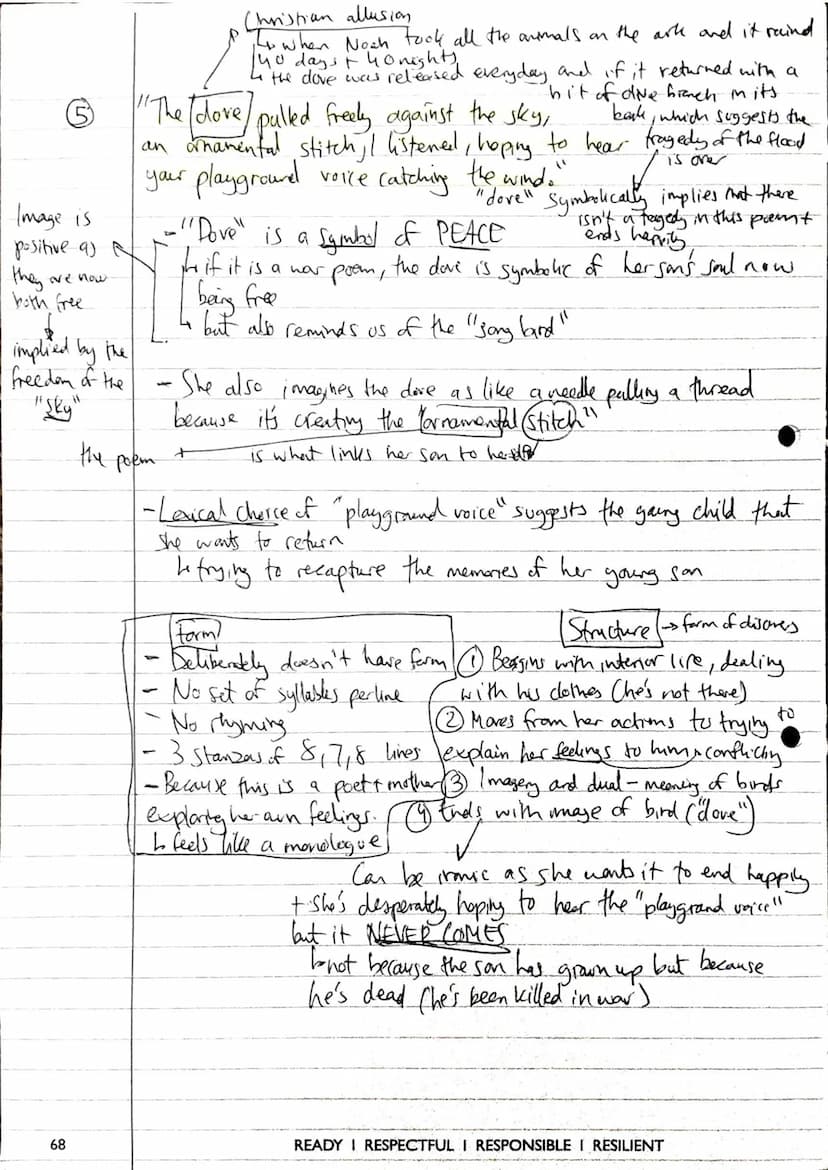 Christian allusion
↳ when Noah took all the animals on the ark and it rained
40 days + 40 nights
↳ the dove was released everyday and if it returned with a
bit of olive branch in its
beak, which suggests the
tragedy of the flood
is over
⑤
"The dove pulled freely against the sky,
an ornamental stitch, I listened, hoping to hear
your playground voice catching the wind."
"dove" symbolically implies that there
isn't a tragedy in this poem +
ends happily
- "Dove" is a symbol of PEACE
↳ if it is a war poem, the dove is symbolic of her son's soul now
being free
↳ but also reminds us of the "song bird"
Image is
positive as
they are now
both free
implied by the
freedom of the
"sky"
- She also imagines the dove as like a needle pulling a thread
because it's creating the "ornamental stitch"
the poem + is what links her son to her
- Lexical choice of "playground voice" suggests the young child that
she wants to return
↳ trying to recapture the memories of her young son
Form
- Deliberately doesn't have form
- No set of syllables per line
- No rhyming
- 3 stanzas of 8, 7, 8 lines
- Because this is a poet + mother
exploring her own feelings.
↳ feels like a monologue
Structure → form of discovers
① Begins with interior life, dealing
with his clothes (he's not there)
② Moves from her actions to trying to
explain her feelings to him conflicting
③ Imagery and dual-meaning of birds
④ Ends with image of bird ("dove")
Can be ironic as she wants it to end happily
+ she's desperately hoping to hear the "playground voice"
but it NEVER COMES
↳ not because the son has grown up but because
he's dead (he's been killed in war)
68
READY | RESPECTFUL | RESPONSIBLE | RESILIENT